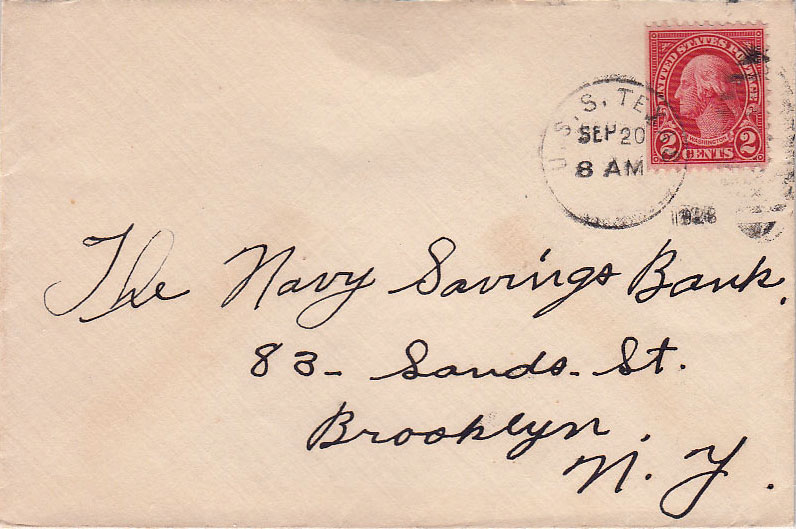 UNITED STATES POSTAGE
WASHINGTON
2 CENTS 2
U.S.S. TEXAS
SEP 20
8 AM
The Navy Savings Bank.
83- Sands. St.
Brooklyn.
N. Y.